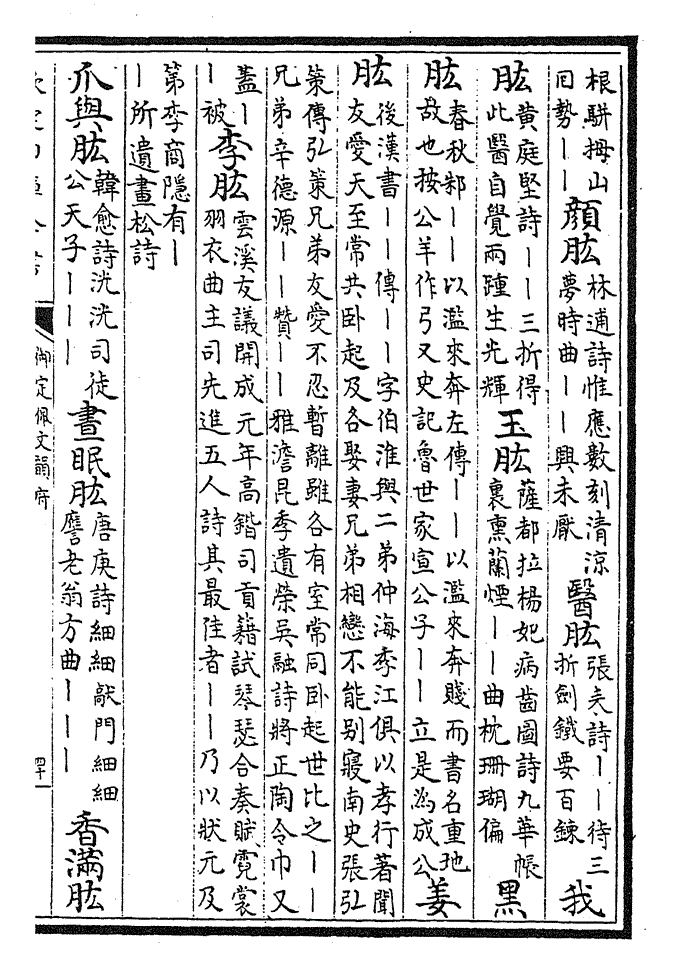 根駢拇山囘勢〡〡顔肱林逋詩惟應數刻清涼夢時曲〡〡興未厭醫肱張耒詩〡〡待三折劍鐵要百鍊我
肱黄庭堅詩〡〡三折得此醫自覺兩踵生光輝玉肱薩都拉楊妃病齒圖詩九華帳裏熏蘭煙〡〡曲枕珊瑚偏黑
肱春秋邾〡〡以濫來奔左傳〡〡以濫來奔賤而書名重地故也按公羊作弓又史記魯世家宣公子〡〡立是為成公姜
肱後漢書〡〡傳〡〡字伯淮與二弟仲海季江俱以孝行著聞友愛天至常共卧起及各娶妻兄弟相戀不能别寢南史張弘
策傳弘策兄弟友愛不忍暫離雖各有室常同卧起世比之〡〡兄弟辛德源〡〡贊〡〡雅澹昆季遺榮吳融詩將正陶令巾又
蓋〡〡被李肱雲溪友議開成元年高鍇司貢籍試琴瑟合奏賦霓裳羽衣曲主司先進五人詩其最佳者〡〡乃以狀元及
第李商隱有〡〡所遺畫松詩
爪與肱韓愈詩洸洸司徒公天子〡〡〡晝眠肱唐庚詩細細敲門細細譍老翁方曲〡〡〡香滿肱
御定佩文韻府